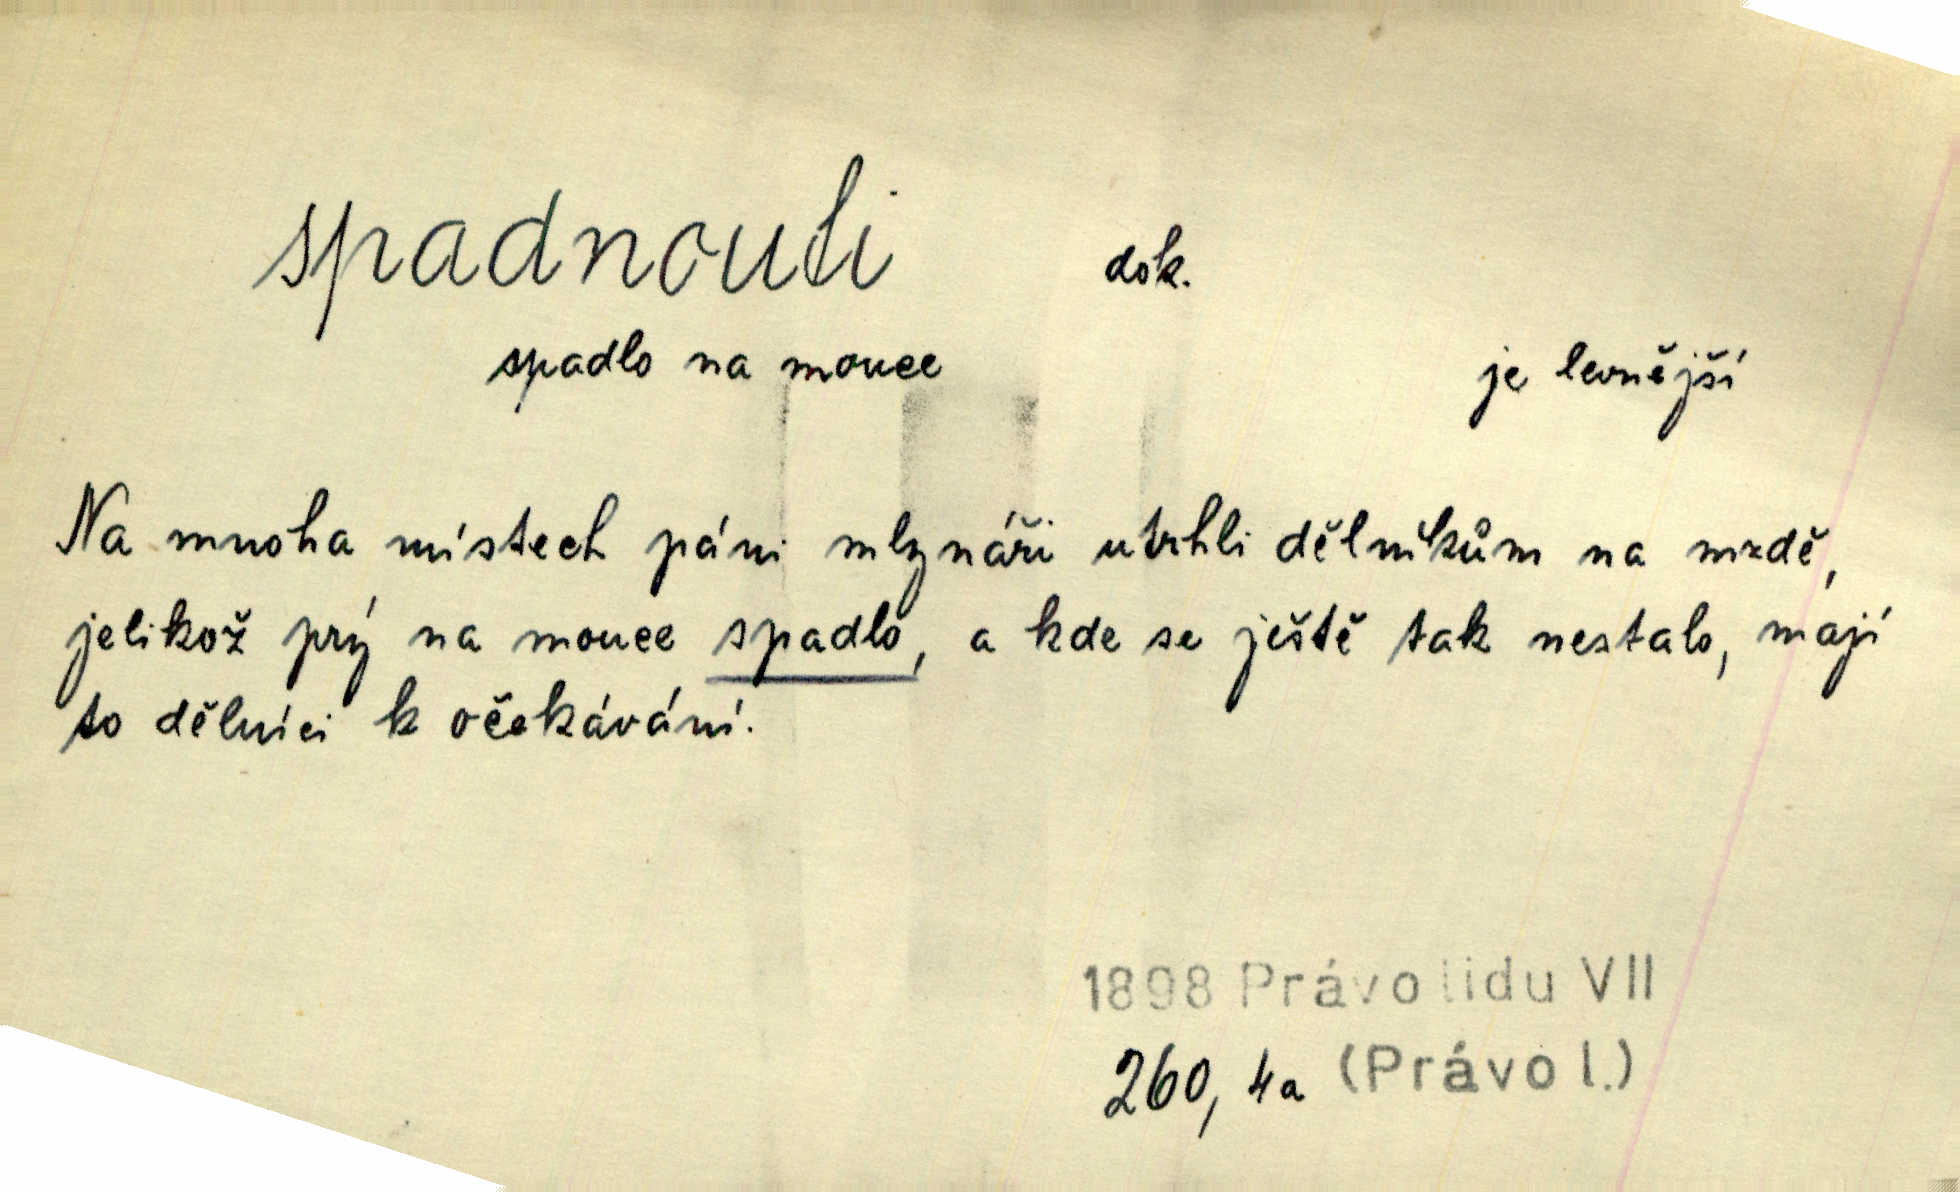 spadnouti dok.
spadlo na mouce je levnější
Na mnoha místech páni mlynáři utrhli dělníkům na mzdě,
jelikož prý na mouce spadlo, a kde se ještě tak nestalo, mají
to dělníci k očekávání.
1898 Právo lidu VII
260, 4a (Právo l.)